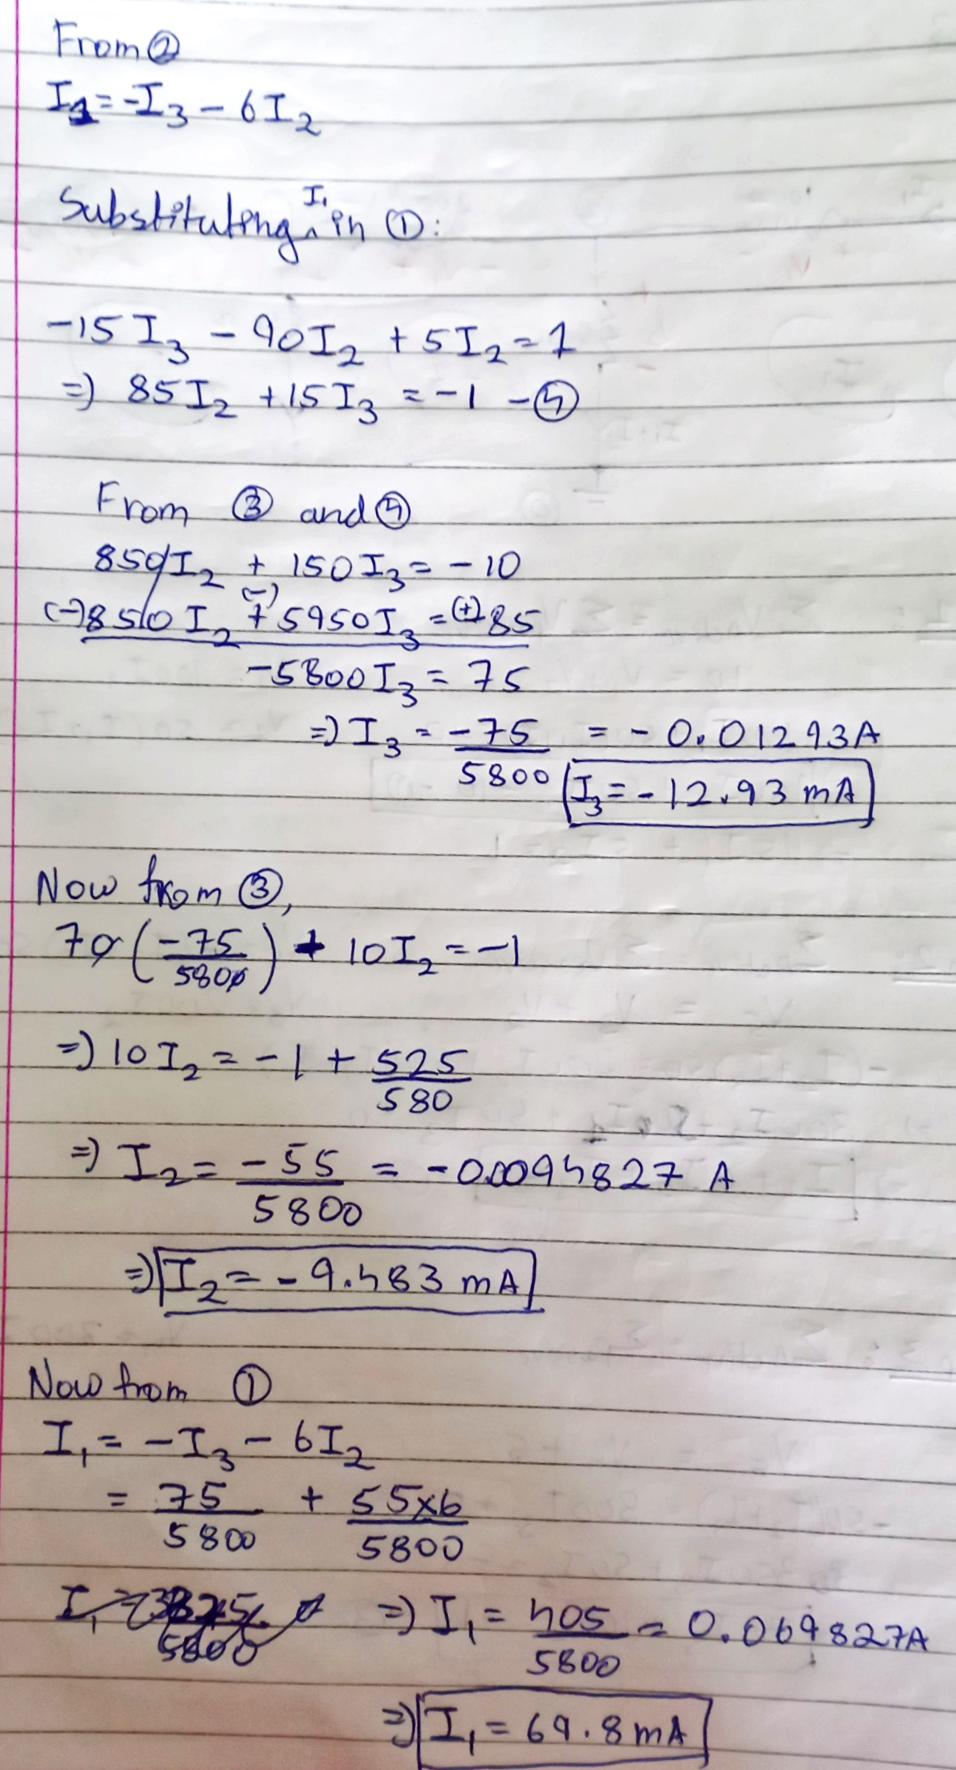 From ②
I₁ = -I₃ - 6I₂
Substituting I₁ in ①:
-15 I₃ - 90I₂ + 5I₂ = 1
⇒ 85I₂ + 15I₃ = -1 - ④
From ③ and ④
850I₂ + 150I₃ = -10
(-)850I₂ +(-) 5950I₃ = (+)-85
-5800I₃ = 75
⇒ I₃ = -75/5800 = -0.01293A
I₃ = -12.93 mA
Now from ③,
70(-75/5800) + 10I₂ = -1
⇒ 10I₂ = -1 + 525/580
⇒ I₂ = -55/5800 = -0.0094827 A
⇒ I₂ = -9.483 mA
Now from ①
I₁ = -I₃ - 6I₂
= 75/5800 + 55×6/5800
⇒ I₁ = 405/5800 = 0.069827A
⇒ I₁ = 69.8mA